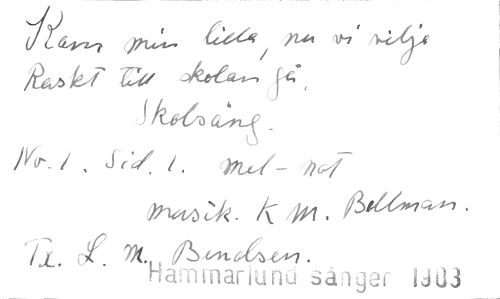 Kom min lilla, nu vi vilja
Raskt till skolan gå.
Skolsång.
No. 1. Sid. 1. mel-not
musik. K M. Bellman.
Tx. L. M. Bendsen.
Hammarlund sånger 1903